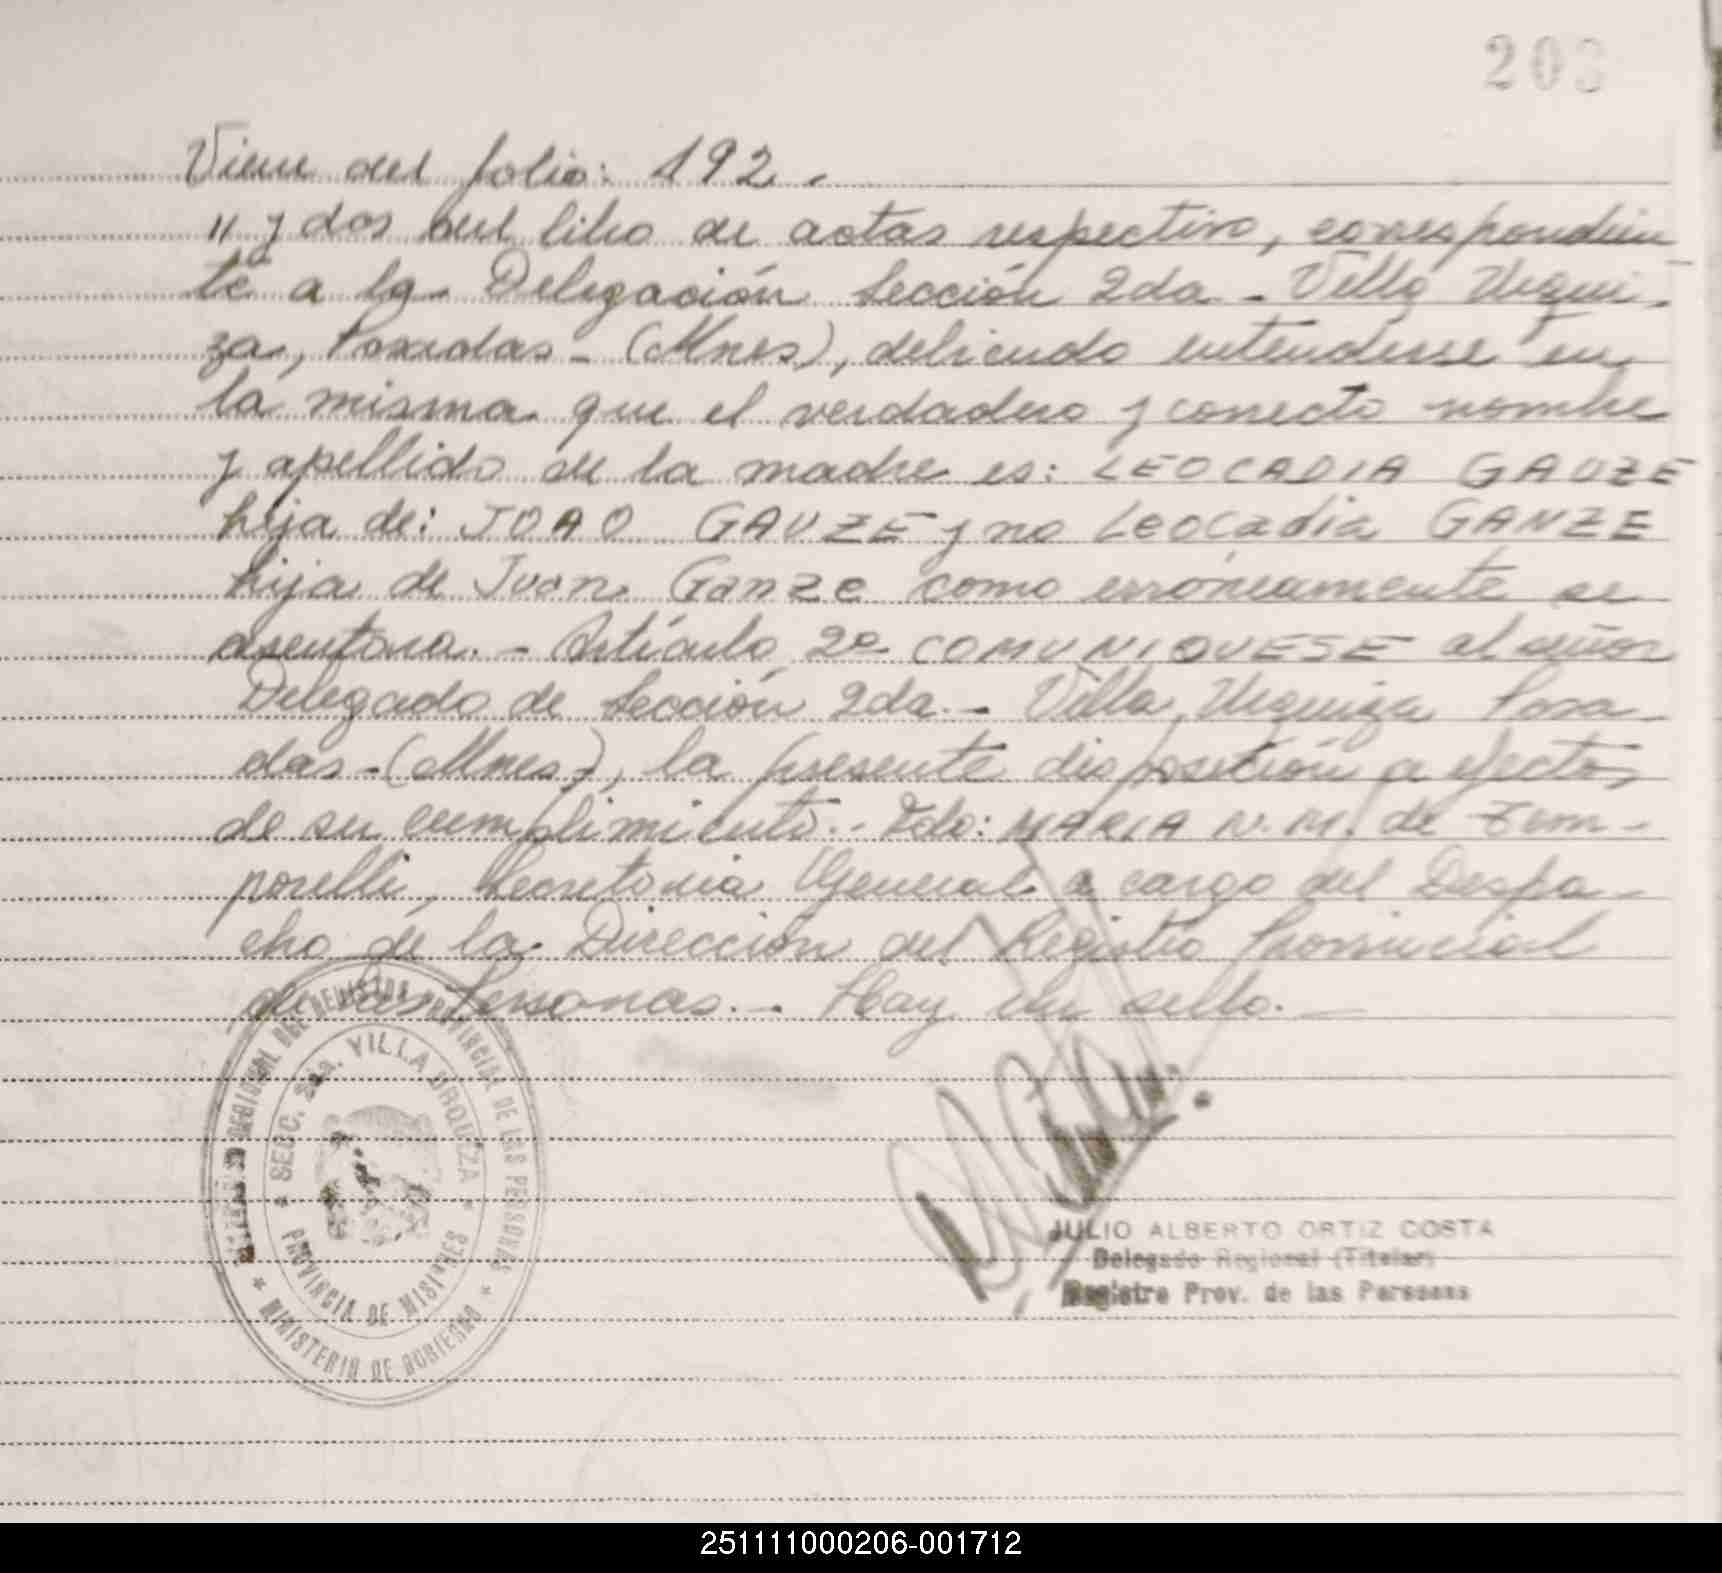 203
Viene del folio: 192.
" y dos del libro de actas respectivo, correspondien
te a la Delegación Sección 2da - Villa Urqui-
za, Posadas - (Mnes), debiendo entenderse en
la misma que el verdadero y correcto nombre
y apellido de la madre es: LEOCADIA GAUZE
hija de: JOAO GAUZE y no Leocadia GANZE
hija de Juan Ganze como erróneamente se
asentara. - Artículo 2º COMUNIQUESE al señor
Delegado de Sección 2da. - Villa Urquiza Posa-
das - (Mnes), la presente disposición a efectos
de su cumplimiento. - Fdo: MARIA N. M. de Tem-
porelli, Secretaria General a cargo del Despa-
cho de la Dirección del Registro Provincial
de las Personas. - Hay un sello. -
SECC. 2da. VILLA URQUIZA
PROVINCIA DE MISIONES
MINISTERIO DE GOBIERNO
JULIO ALBERTO ORTIZ COSTA
Delegado Regional (Titular)
Registro Prov. de las Personas
251111000206-001712